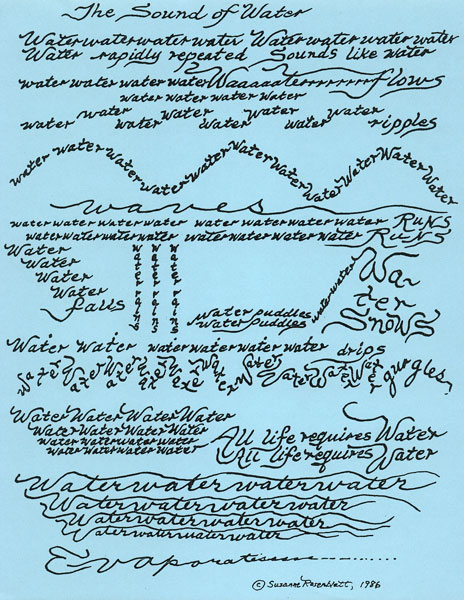 The Sound of Water
Waterwaterwaterwater Waterwaterwaterwater
Water rapidly repeated Sounds like water
waterwaterwaterwaterWaaaaaterrrrrrrrflows
waterwaterwaterwaterwater
water water water water water water water water ripples
waterwaterwaterwaterwaterWaterWaterWaterWaterWaterWaterWaterWater
waves
waterwaterwaterwaterwater waterwaterwaterwaterwater RuNS
waterwaterwaterwaterwater waterwaterwaterwaterwater RuNS
Water
Water
Water
Water
falls
waterrains waterrains waterrains
water puddles
water puddles
waterwater
Wa
ter
SnowS
Water Water waterwaterwaterwaterwater drips
gurgles,
WaterWaterWaterWater
WaterWaterWaterWater
waterwaterwaterwater
waterwaterwaterwater
All life requires Water
All life requires Water
Waterwaterwaterwaterwater
Waterwaterwaterwaterwater
Waterwaterwaterwaterwater
Waterwaterwaterwaterwater
Evaporatissss
© Suzanne Rosenblatt, 1986